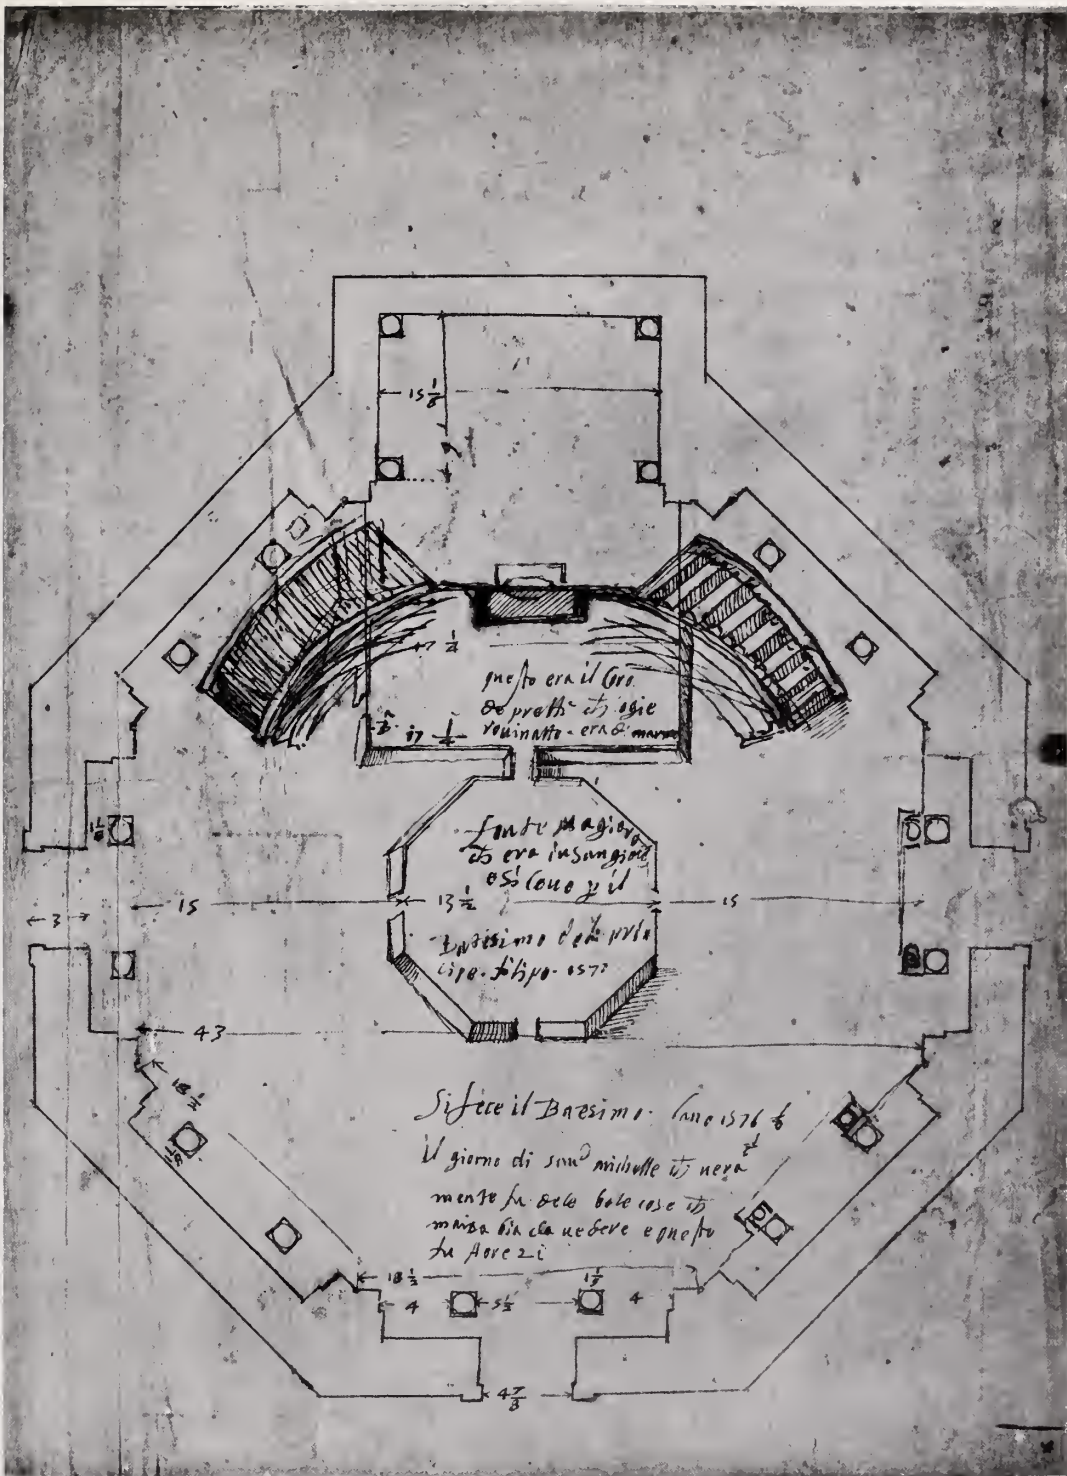 15 1/8
9
47 1/4
questo era il Coro
de pretti ch ogie
rouinatto - era di marmo
37 1/4
fonte magiore
ch era in san gioũ
e si leuo p il
Batesimo del prĩ
cipe. filipo. 1577
1 1/8
3
15
13 1/2
15
43
18 1/2
1 1/8
Si fece il Batesimo. lano 1576
il giorno di san michelle ch uera
mente fu dele bele cose ch
mai da uedere e questo
fu a ore 21
18 1/2
1 1/8
4
5 1/2
4
4 7/8